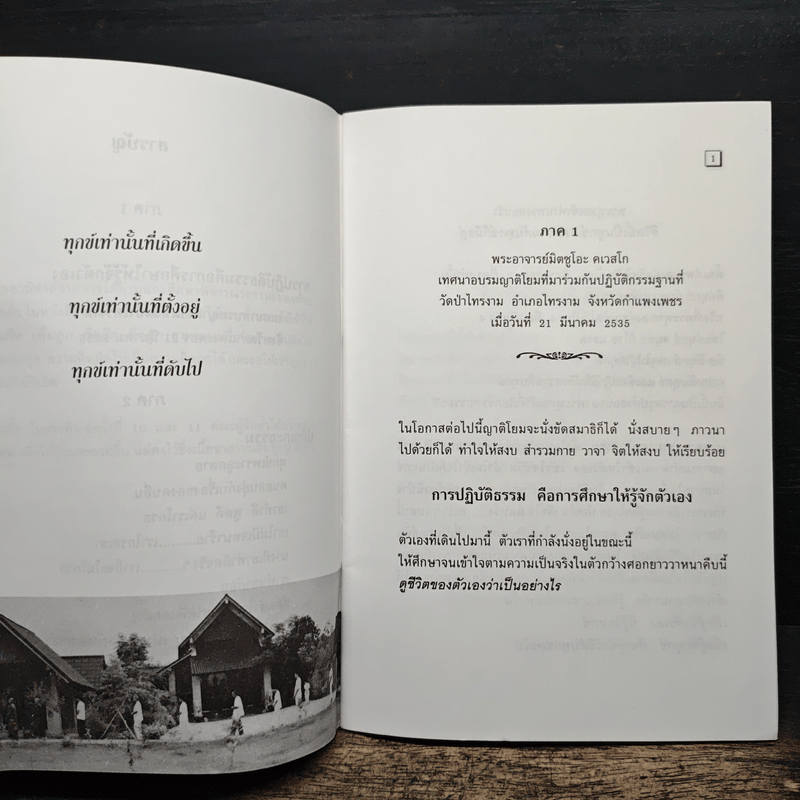 ทุกข์เท่านั้นที่เกิดขึ้น
ทุกข์เท่านั้นที่ตั้งอยู่
ทุกข์เท่านั้นที่ดับไป
1
ภาค 1
พระอาจารย์มิตซูโอะ คเวสโก
เทศนาอบรมญาติโยมที่มาร่วมกันปฏิบัติกรรมฐานที่
วัดป่าไทรงาม อำเภอไทรงาม จังหวัดกำแพงเพชร
เมื่อวันที่ 21 มีนาคม 2535
ในโอกาสต่อไปนี้ญาติโยมจะนั่งขัดสมาธิก็ได้ นั่งสบายๆ ภาวนา
ไปด้วยก็ได้ ทำใจให้สงบ สำรวมกาย วาจา จิตให้สงบ ให้เรียบร้อย
การปฏิบัติธรรม คือการศึกษาให้รู้จักตัวเอง
ตัวเองที่เดินไปมานี้ ตัวเราที่กำลังนั่งอยู่ในขณะนี้
ให้ศึกษาจนเข้าใจตามความเป็นจริงในตัวกว้างศอกยาววาหนาคืบนี้
ดูชีวิตของตัวเองว่าเป็นอย่างไร